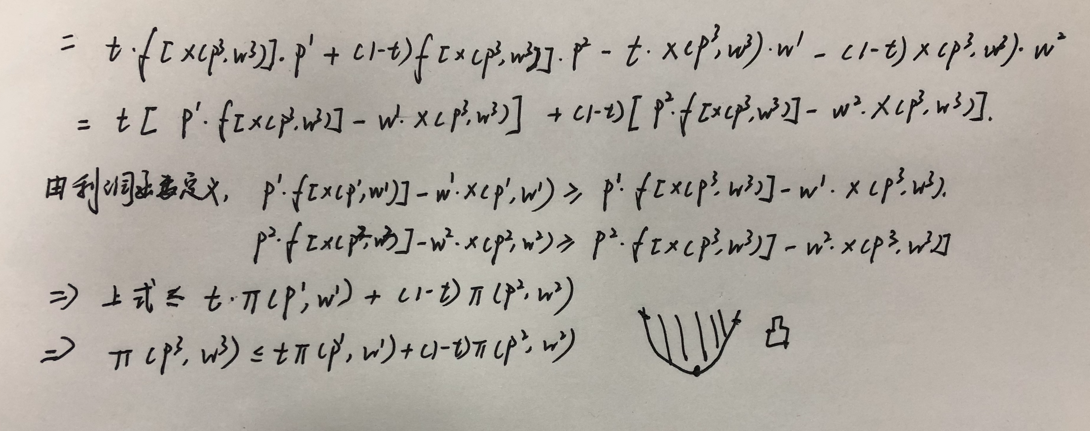 = t·f[x(p³,w³)]·p¹ + (1-t)f[x(p³,w³)]·p² - t·x(p³,w³)·w¹ - (1-t)x(p³,w³)·w²
= t[p¹·f[x(p³,w³)] - w¹·x(p³,w³)] + (1-t)[p²·f[x(p³,w³)] - w²·x(p³,w³)].
由利润函数定义, p¹·f[x(p¹,w¹)] - w¹·x(p¹,w¹) ≥ p¹·f[x(p³,w³)] - w¹·x(p³,w³).
p²·f[x(p²,w²)] - w²·x(p²,w²) ≥ p²·f[x(p³,w³)] - w²·x(p³,w³)]
=> 上式 ≤ t·π(p¹,w¹) + (1-t)π(p²,w²)
=> π(p³,w³) ≤ tπ(p¹,w¹) + (1-t)π(p²,w²) 凸